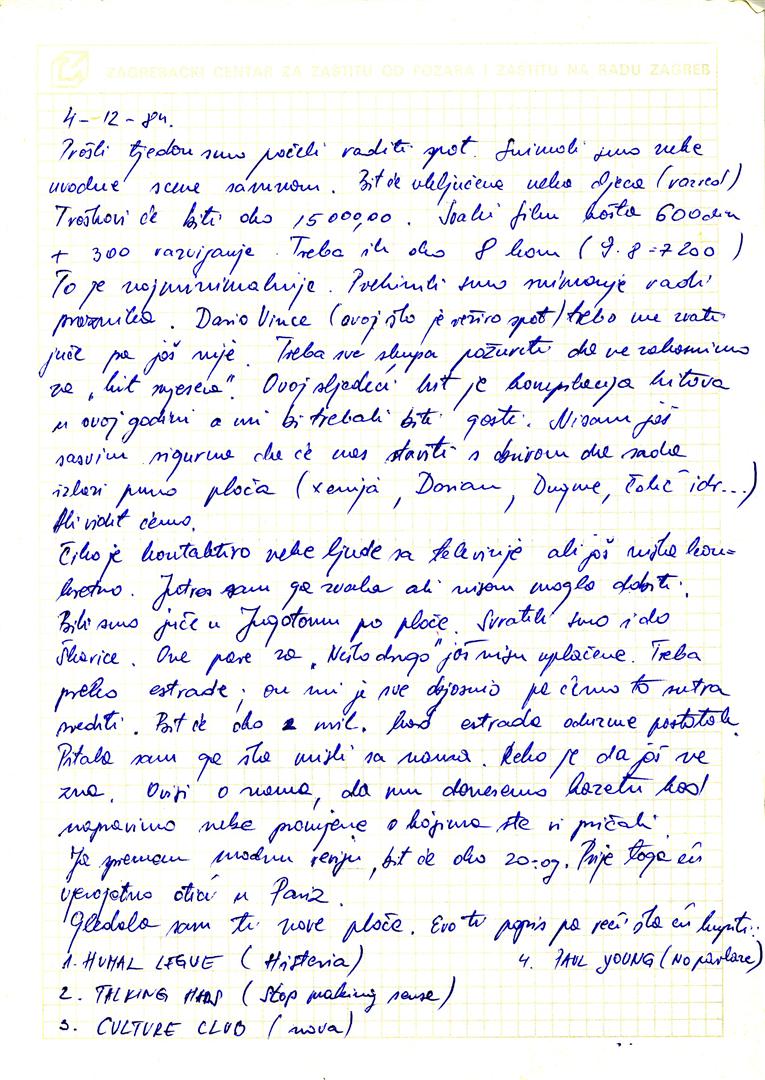 ZAGREBAČKI CENTAR ZA ZAŠTITU OD POŽARA I ZAŠTITU NA RADU ZAGREB
4-12-84.
Prošli tjedan smo počeli raditi spot. Snimali smo neke
uvodne scene samnom. Bit će uključena neka djeca (razred)
Troškovi će biti oko 15000,00. Svaki film košta 600 din
+ 300 razvijanje. Treba ih oko 8 kom (9·8=7200)
To je najminimalnije. Prekinuli smo snimanje radi
praznika. Dario Vince (ovaj što je režiro spot) trebo me zvati
juče pa još nije. Treba sve skupa požuriti da ne zakasnimo
za „hit mjeseca". Ovaj sljedeći hit je kompilacija hitova
u ovoj godini a mi bi trebali biti gosti. Nisam još
sasvim sigurna da će nas staviti s obzirom da sada
izlazi puno ploča (xenija, Dorian, Dugme, Čolić idr...)
Ali vidit ćemo.
Čiko je kontaktiro neke ljude sa televizije ali još ništa kon-
kretno. Jutros sam ga zvala ali nisam mogla dobiti.
Bili smo juče u Jugotonu po ploče. Svratili smo i do
Škarice. One pare za „Nešto drugo" još nisu uplaćene. Treba
preko estrade; on mi je sve objasnio pa ćemo to sutra
srediti. Bit će oko 2 mil. kad estrada oduzme postotak.
Pitala sam ga šta misli sa nama. Reko je da još ne
zna. Ovisi o nama, da mu donesemo kazetu kad
napravimo neke promjene o kojima ste vi pričali.
Ja spremam modnu reviju, bit će oko 20-og. Prije toga ću
vjerojatno otići u Pariz.
Gledala sam te nove ploče. Evo ti popis pa reci šta ću kupiti:
1. HUMAL LEGUE (Histeria) 4. PAUL YOUNG (No parlare)
2. TALKING HADS (Stop making sense)
3. CULTURE CLUB (nova)